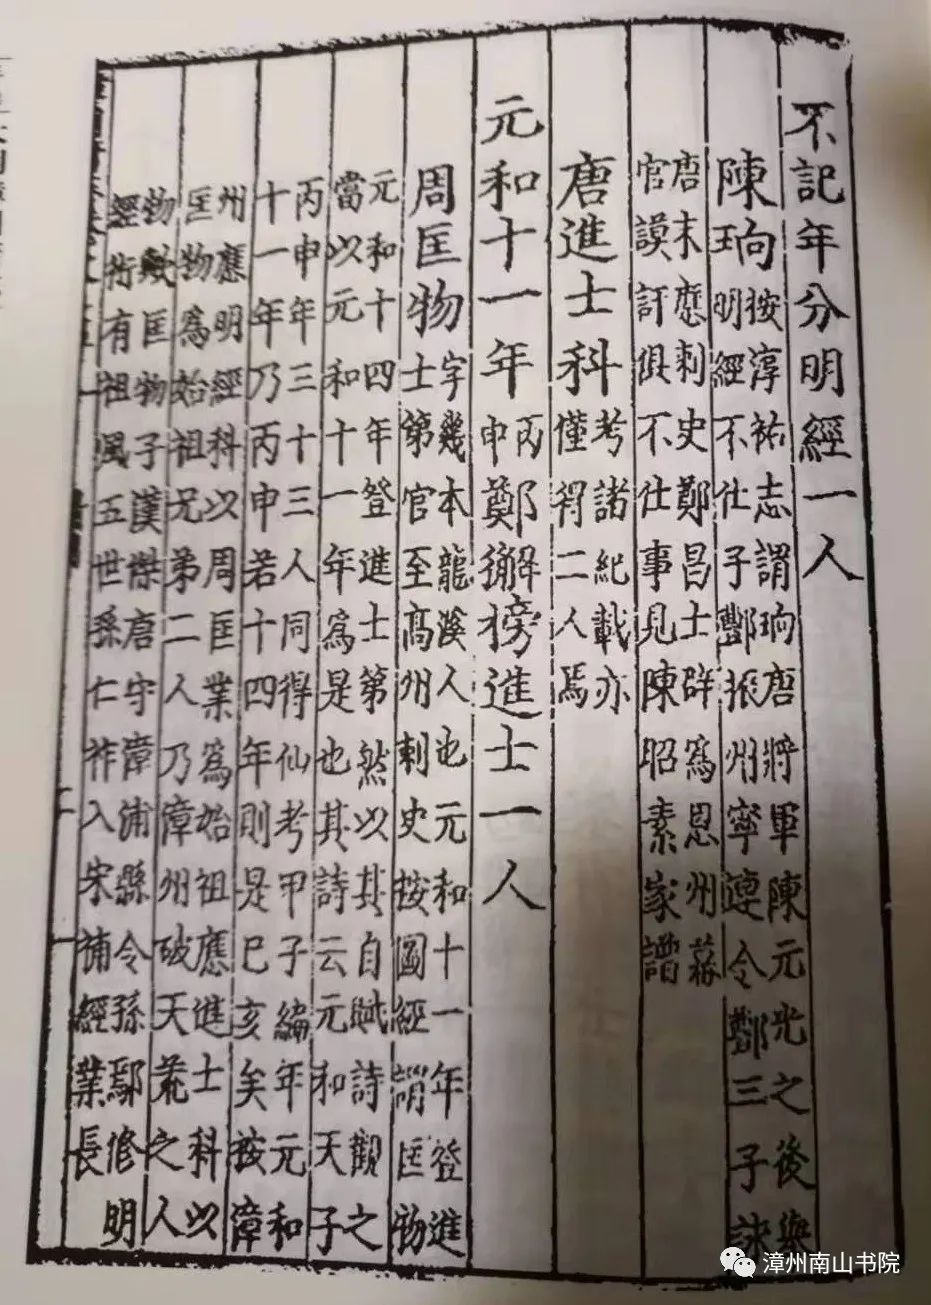 不記年分明經一人
陳珦按淳祐志謂珦唐將軍陳元光之後舉
明經不仕子酆振州寧遠令酆三子詠
唐末應刺史鄭昌士辟爲恩州
官謨訏俱不仕事見陳昭素家譜
唐進士科考諸紀載亦
僅得二人焉
元和十一年丙申鄭獬榜進士一人
周匡物字幾本龍溪人也元和十一年登進
士第官至髙州刺史按圖經謂匡物
元和十四年登進士第然以其自賦詩觀之
當以元和十一年爲是也其詩云元和天子
丙申年三十三人同得仙考甲子編年元和
十一年乃丙申若十四年則是巳亥矣按漳
州應明經科以周匡業爲始祖應進士科以
匡物爲始祖兄弟二人乃漳州破天荒之人
物歟匡物子漢傑唐守漳浦縣令孫鄢修明
經術有祖風五世孫仁祚入宋補經業長
漳州南山书院